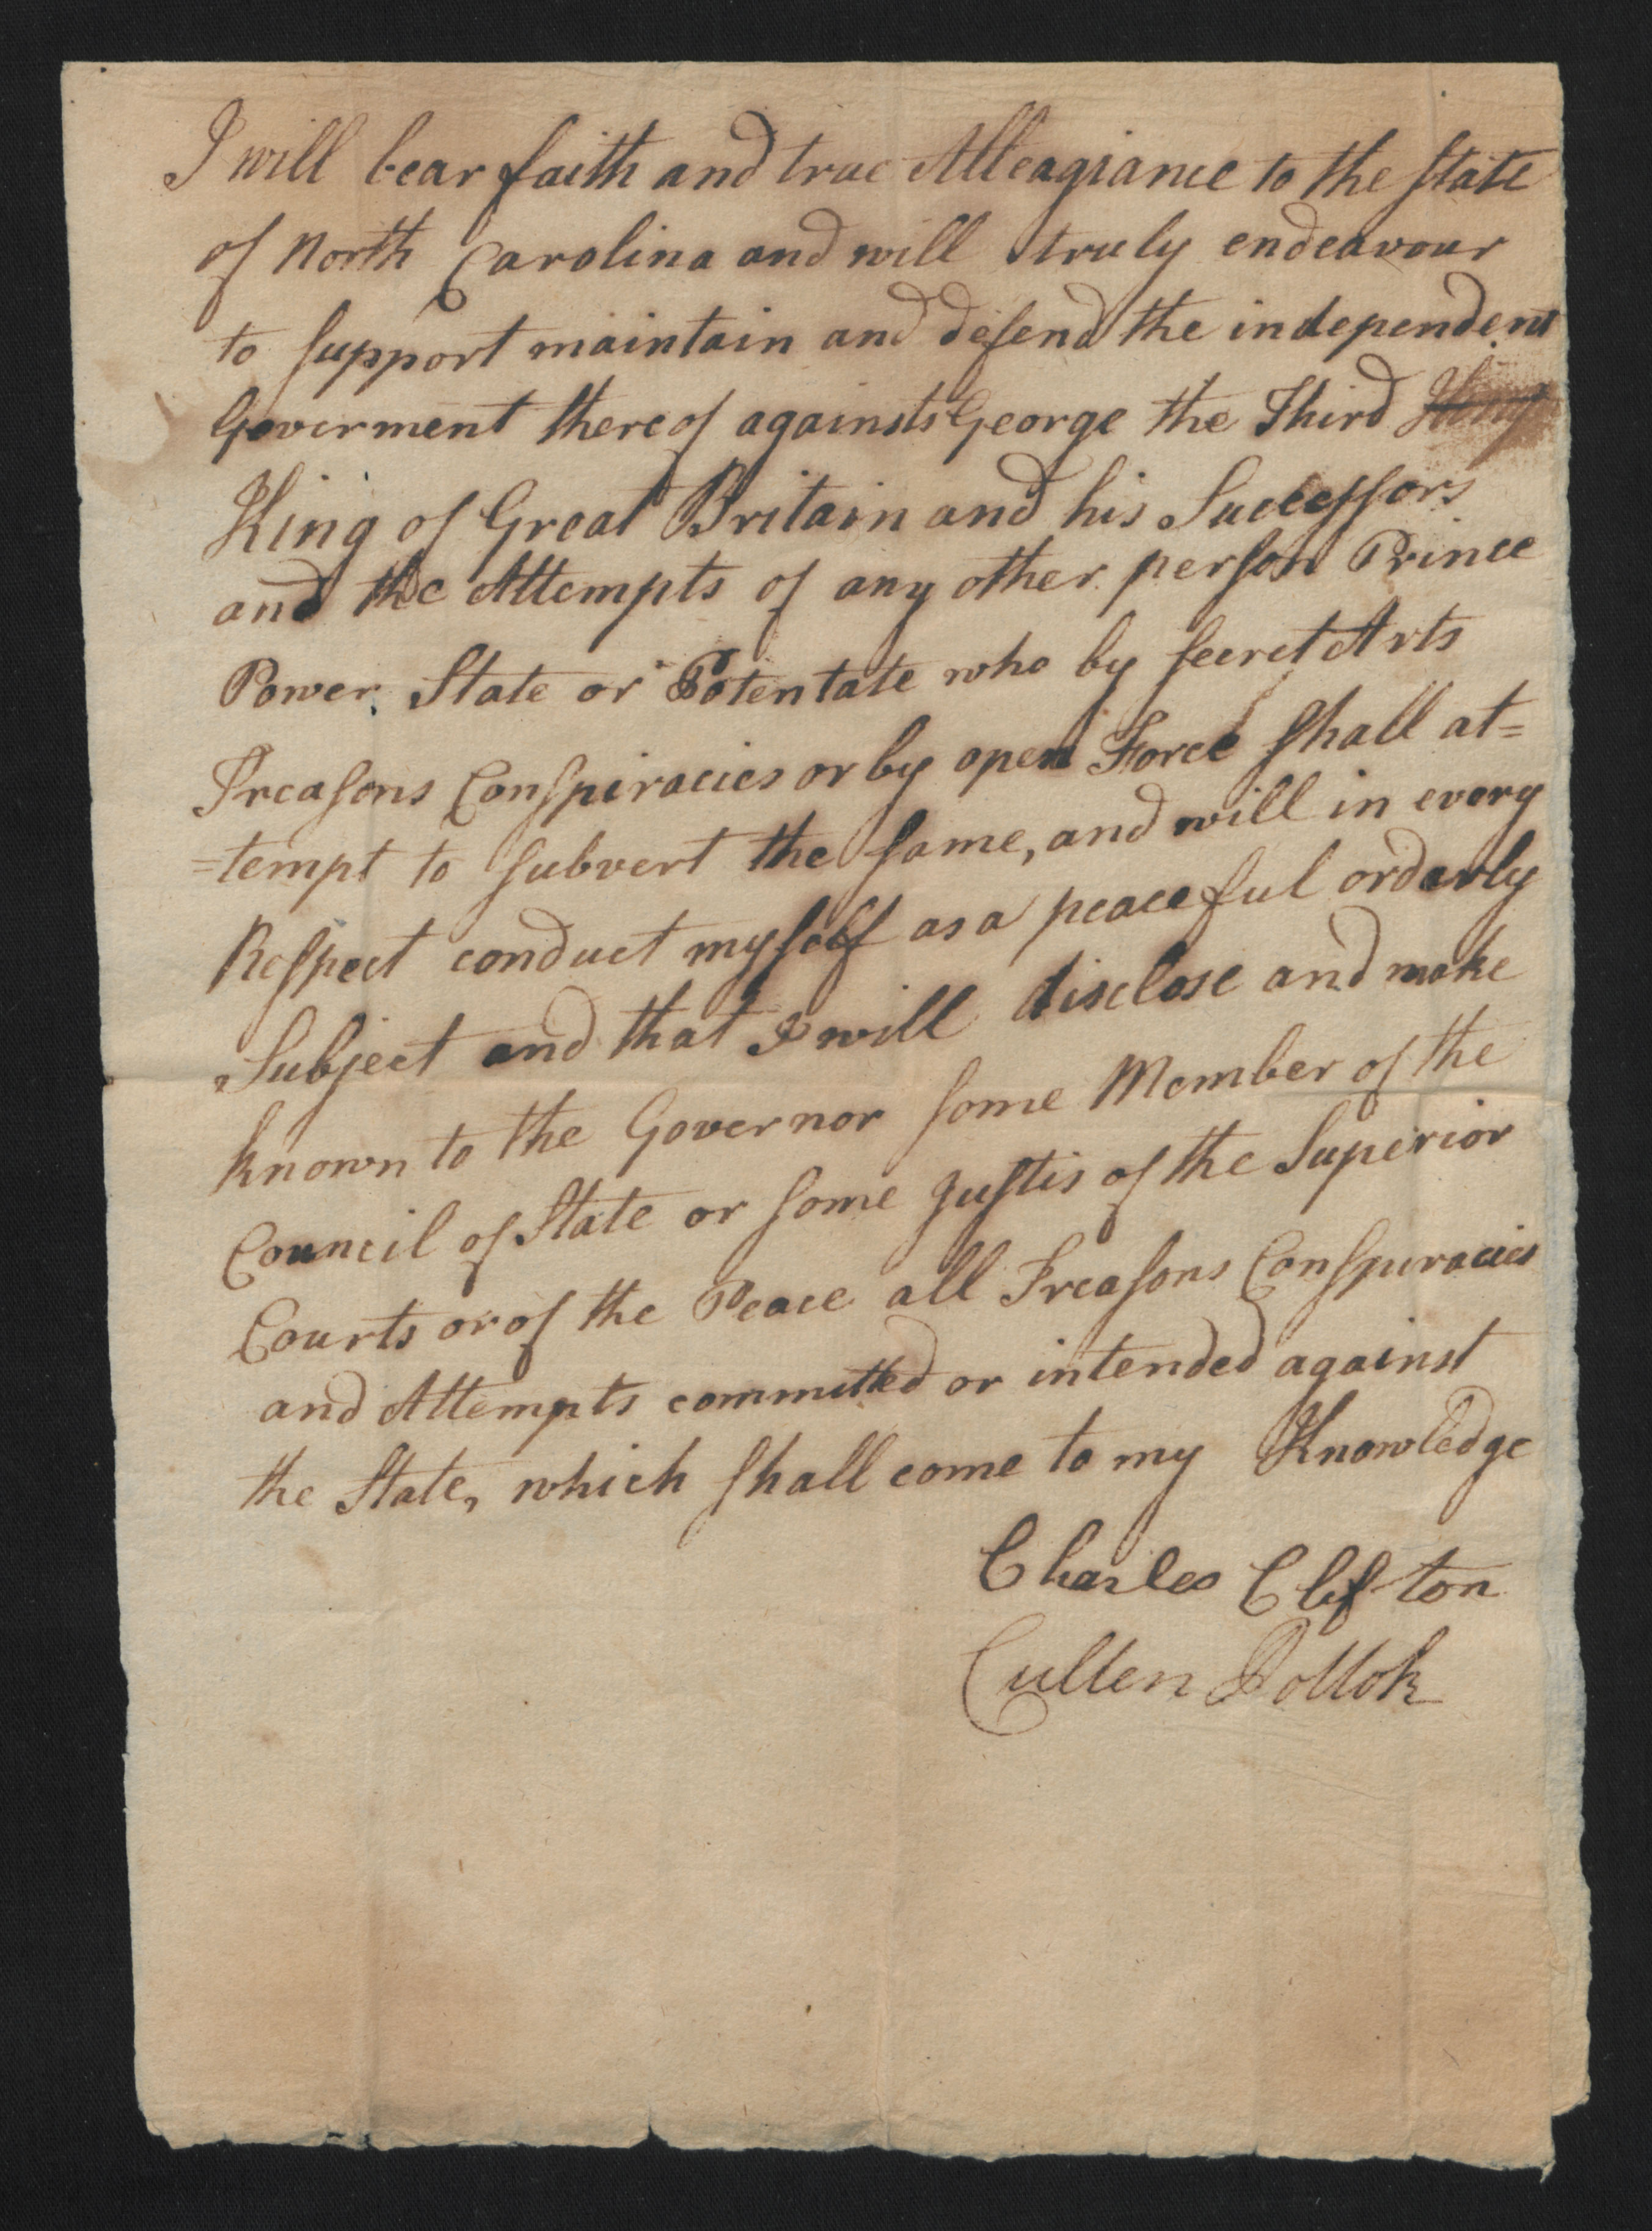 I will bear faith and true Alleagiance to the State
of North Carolina and will truly endeavour
to support maintain and defend the independent
Goverment thereof againsts George the Third King
King of Great Britain and his Successors
and the Attempts of any other person Prince
Power State or Potentate who by secret Arts
Treasons Conspiracies or by open Force shall at=
=tempt to subvert the same, and will in every
Respect conduct myself as a peaceful orderly
Subject and that I will disclose and make
known to the Governor some Member of the
Council of State or some Justis of the Superior
Courts or of the Peace all Treasons Conspiracies
and Attempts committed or intended against
the State, which shall come to my Knowledge
Charles Clifton
Cullen Pollok